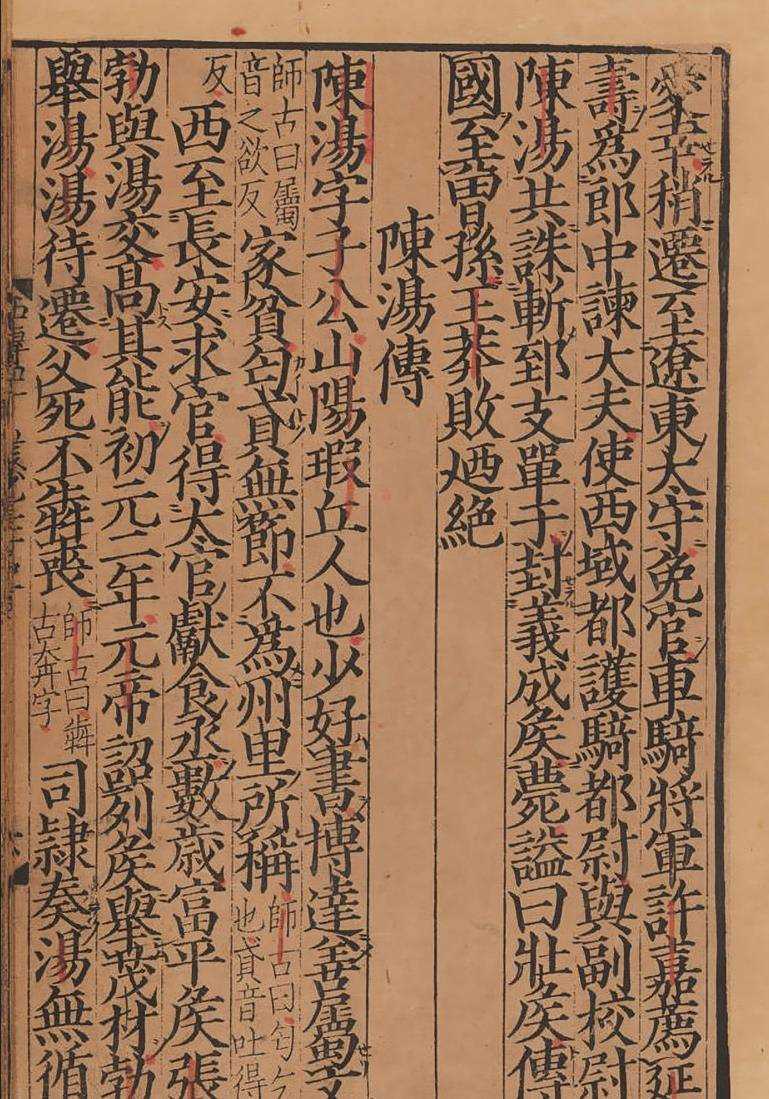 愛幸稍遷至遼東大守免官車騎將軍許嘉薦延
壽爲郎中諫大夫使西域都護騎都尉與副校尉
陳湯共誅斬郅支單于封義成矦薨謚曰壯矦傳
國至曾孫王莽敗迺絶
陳湯傳
陳湯字子公山陽瑕丘人也少好書博達善屬文
師古曰屬音之欲反家貧匄貣無節不爲州里所稱師古曰匄乞也貣音吐得
反西至長安求官得太官獻食丞數歳富平矦張
勃與湯交髙其能初元二年元帝詔列矦舉茂材勃
舉湯湯待遷父死不犇喪師古曰犇古奔字司隷奏湯無循